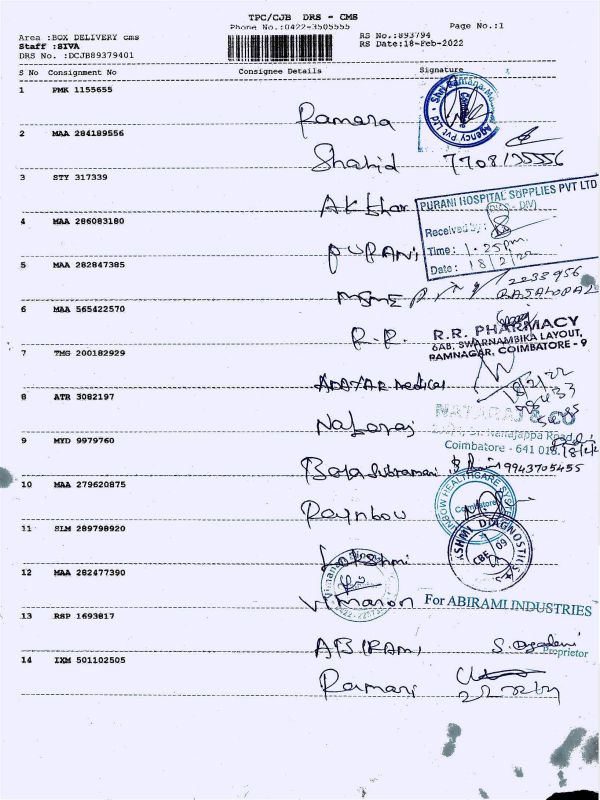 TPC/CJB DRS - CMS
Phone No.:0422-3505555
Page No.:1
Area :BOX DELIVERY cms
RS No.:893794
Staff :SIVA
RS Date:18-Feb-2022
DRS No. :DCJB89379401
S No Consignment No Consignee Details Signature
1 PMK 1155655
Ramana
2 MAA 284189556
Shahid 7708135556
3 STY 317339
Akbhar
PURANI HOSPITAL SUPPLIES PVT LTD
Received by :
Time : 1.25pm
Date : 18/2/22
4 MAA 286083180
PURANI
5 MAA 282847385
MSME
2233956
RAJAGOPAL
6 MAA 565422570
R.R.
R.R. PHARMACY
6AB, SWARNAMBIKA LAYOUT,
RAMNAGAR, COIMBATORE - 9
7 TMG 200182929
ADDYAR Medical
18/2/22
8 ATR 3082197
Nataraj
NATARAJ & CO
Nanajappa Road
Coimbatore - 641 018.
9 MYD 9979760
Balasubramani 9943705455
10 MAA 279620875
Raynbow
RAINBOW HEALTHCARE SYS
Coimbatore
11 SLM 289798920
Lakshmi
DIAGNOSTICS
CBE 09
12 MAA 282477390
Vimaron
For ABIRAMI INDUSTRIES
13 RSP 1693817
ABIRAMI
Proprietor
14 IXM 501102505
Ramani